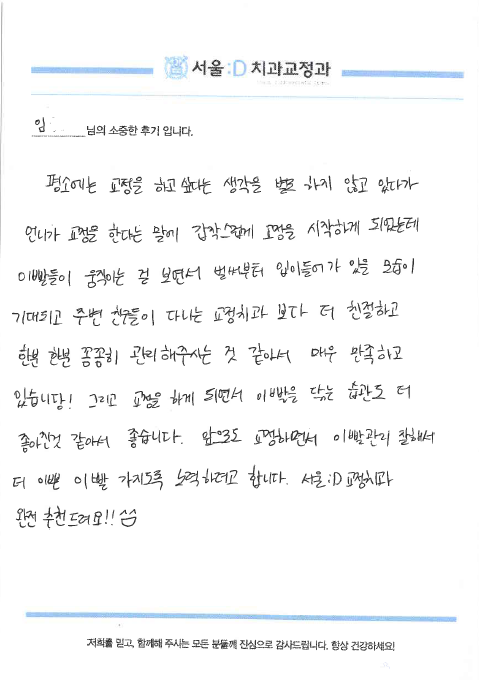 서울:D 치과교정과
임 님의 소중한 후기 입니다.
평소에는 교정을 하고싶다는 생각을 별로 하지 않고 있다가
언니가 교정을 한다는 말에 갑작스럽게 교정을 시작하게 되었는데
이빨들이 움직이는 걸 보면서 벌써부터 입이들어가 있을 모습이
기대되고 주변 친구들이 다니는 교정치과 보다 더 친절하고
한분 한분 꼼꼼히 관리해주시는 것 같아서 매우 만족하고
있습니당! 그리고 교정을 하게 되면서 이빨을 닦는 습관도 더
좋아진것 같아서 좋습니다. 앞으로도 교정하면서 이빨관리 잘해서
더 이쁜 이빨 가지도록 노력하려고 합니다. 서울:D교정치과
완전 추천드려요!! ^^
저희를 믿고, 함께해 주시는 모든 분들께 진심으로 감사드립니다. 항상 건강하세요!